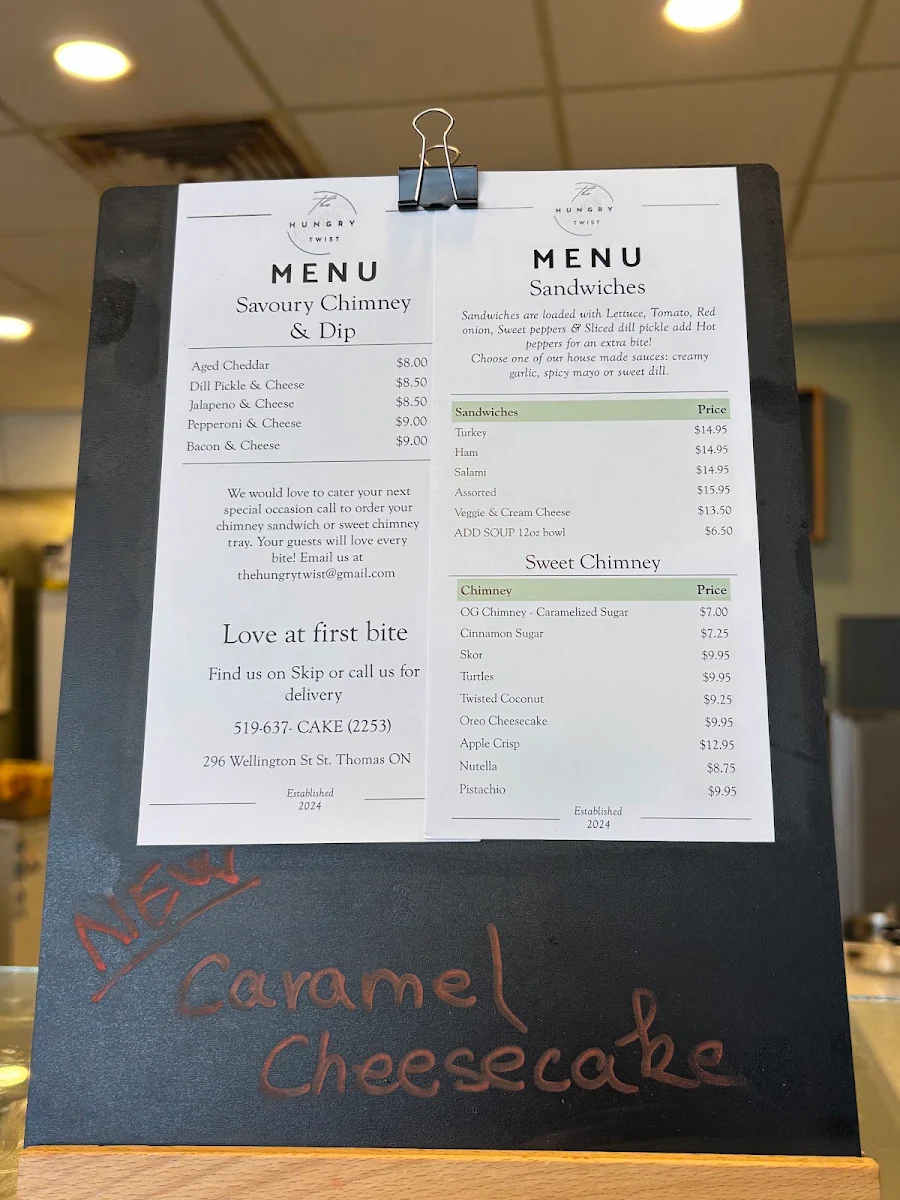 The
HUNGRY
TWIST
MENU
Savoury Chimney
& Dip
Aged Cheddar $8.00
Dill Pickle & Cheese $8.50
Jalapeno & Cheese $8.50
Pepperoni & Cheese $9.00
Bacon & Cheese $9.00
We would love to cater your next
special occasion call to order your
chimney sandwich or sweet chimney
tray. Your guests will love every
bite! Email us at
thehungrytwist@gmail.com
Love at first bite
Find us on Skip or call us for
delivery
519-637- CAKE (2253)
296 Wellington St St. Thomas ON
Established
2024
The
HUNGRY
TWIST
MENU
Sandwiches
Sandwiches are loaded with Lettuce, Tomato, Red
onion, Sweet peppers & Sliced dill pickle add Hot
peppers for an extra bite!
Choose one of our house made sauces: creamy
garlic, spicy mayo or sweet dill.
Sandwiches Price
Turkey $14.95
Ham $14.95
Salami $14.95
Assorted $15.95
Veggie & Cream Cheese $13.50
ADD SOUP 12oz bowl $6.50
Sweet Chimney
Chimney Price
OG Chimney - Caramelized Sugar $7.00
Cinnamon Sugar $7.25
Skor $9.95
Turtles $9.95
Twisted Coconut $9.25
Oreo Cheesecake $9.95
Apple Crisp $12.95
Nutella $8.75
Pistachio $9.95
Established
2024
NEW
Caramel
Cheesecake